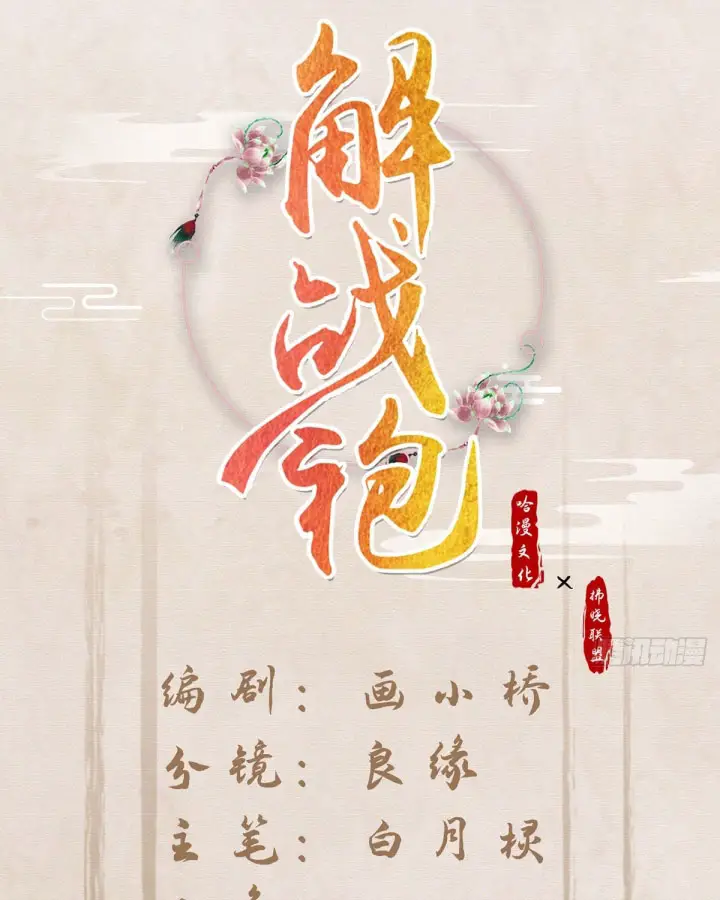 解战袍
哈漫文化
×
拂晓联盟
腾讯动漫
编剧：画小桥
分镜：良缘
主笔：白月棂